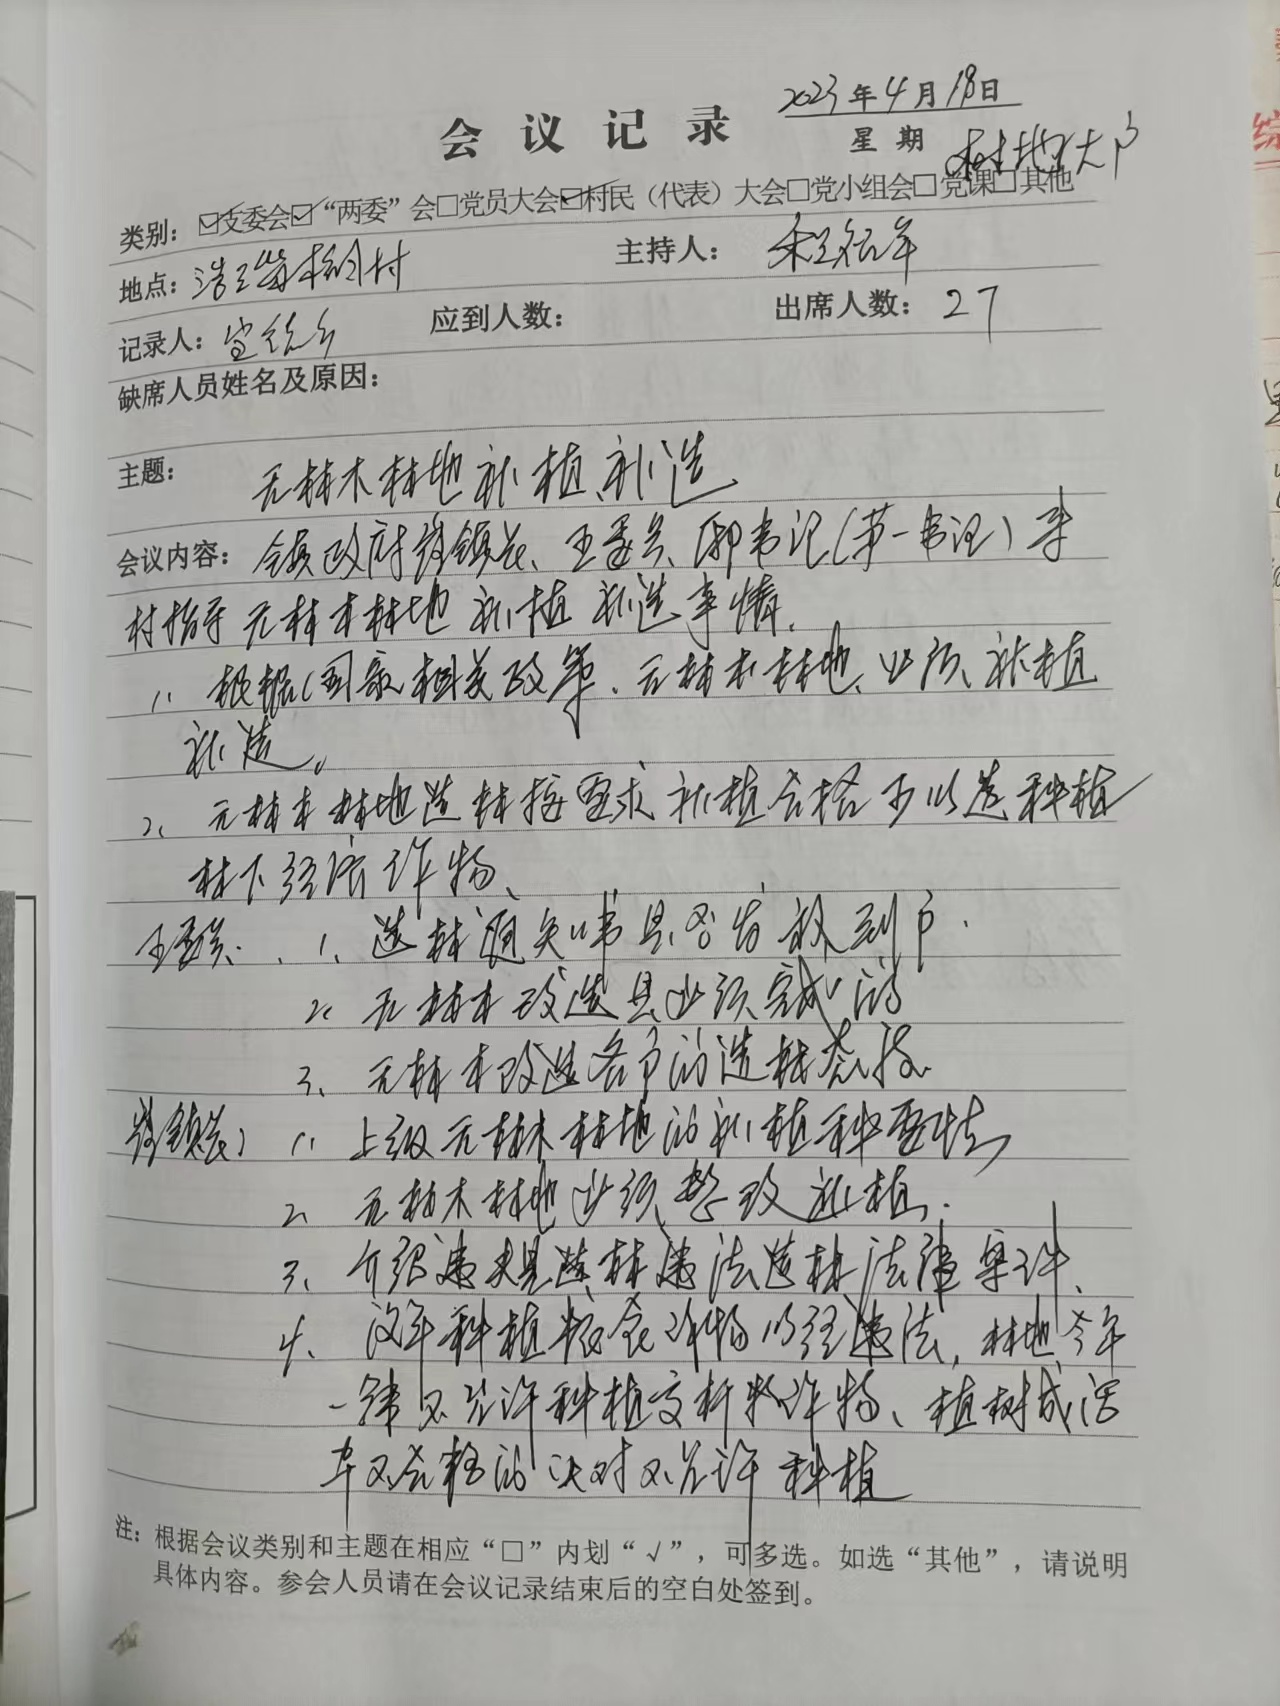 2023年4月18日
会议记录
星期
林地大户
类别：☑支委会☑“两委”会□党员大会☑村民（代表）大会□党小组会□党课□其他
地点： 村 主持人：
记录人： 应到人数： 出席人数：27
缺席人员姓名及原因：
主题： 无林木林地补植、补造
会议内容： 镇政府 镇长、王委员、郭书记（第一书记）来
村指导无林木林地补植补造事情.
1、根据国家相关政策、无林木林地、必须补植
补造。
2、无林木林地造林按要求补植合格可以造种植
林下经济作物、
王委员：1、造林通知书是否发放到户.
2、无林木改造是必须完成的
3、无林木改造各户的造林态度
镇长：1、上级无林木林地的补植种要性
2、无林木林地必须整改补植.
3、介绍违 造林违法造林法律案件、
4、 年种植粮食作物 经违法，林地今年
一律不允许种植 作物、植树成活
率不合格的决对不允许种植
注：根据会议类别和主题在相应“□”内划“√”，可多选。如选“其他”，请说明
具体内容。参会人员请在会议记录结束后的空白处签到。